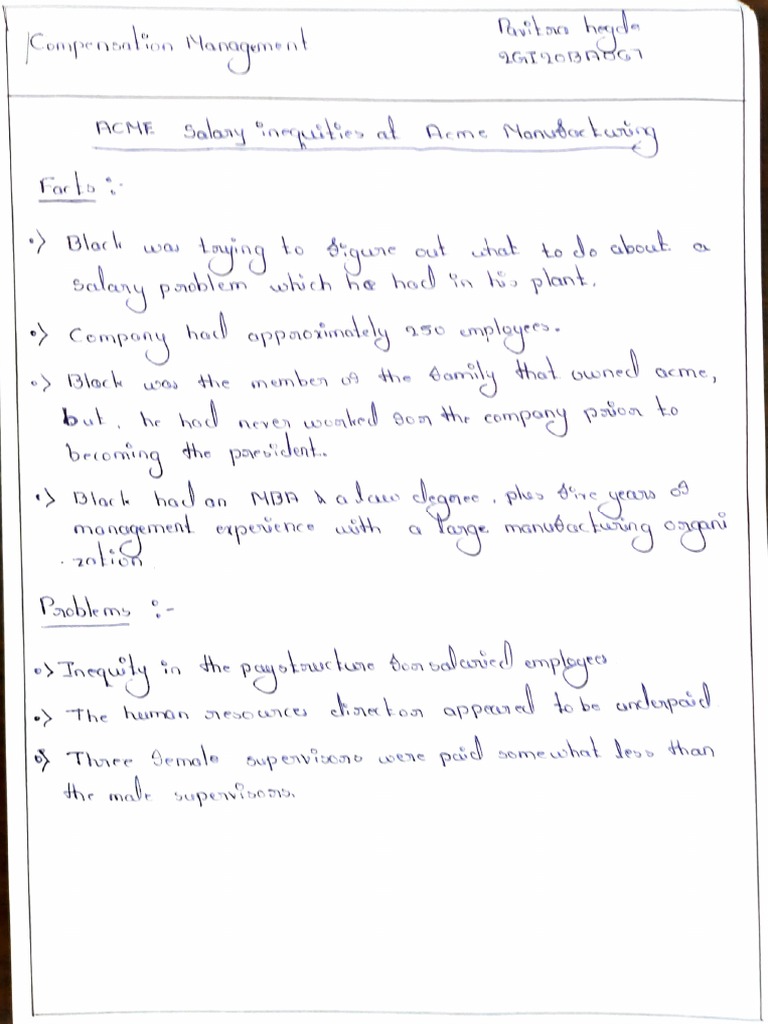 Compensation Management
Pavitra hegde
2GI20BA067
ACME Salary inequities at Acme Manufacturing
Facts :-
•> Black was trying to figure out what to do about a
salary problem which he had in his plant.
•> Company had approximately 250 employees.
•> Black was the member of the family that owned acme,
but, he had never worked for the company prior to
becoming the president.
•> Black had an MBA & a law degree, plus five years of
management experience with a large manufacturing organi
-zation
Problems :-
•> Inequity in the paystructure for salaried employees
•> The human resources director appeared to be underpaid
•> Three female supervisors were paid somewhat less than
the male supervisors.